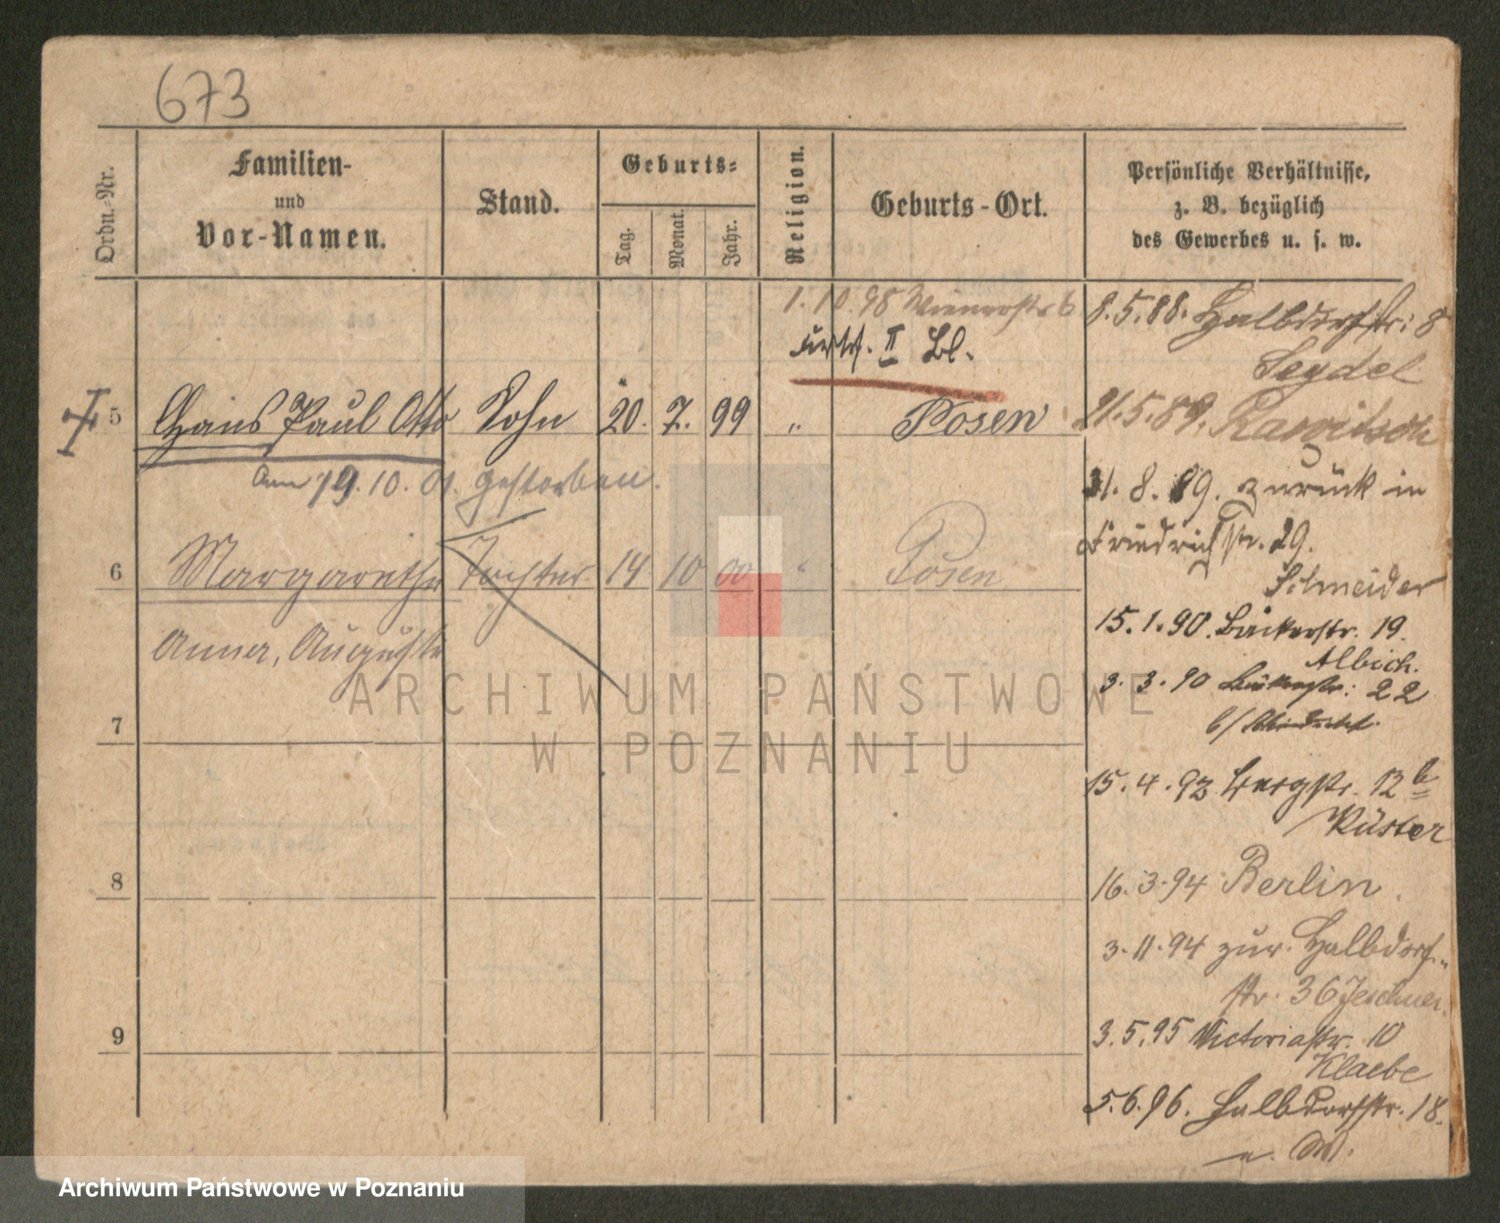 673
Ordn.-Nr.
Familien-
und
Vor-Namen.
Stand.
Geburts-
Tag.
Monat.
Jahr.
Religion.
Geburts-Ort.
Persönliche Verhältnisse,
z. B. bezüglich
des Gewerbes u. s. w.
1. 10. 98 Wienerstr 6
II Bl.
8. 5. 88. Halbdorfstr: 8
Seydel
5 Hans Paul Otto Sohn 20. 7. 99 " Posen
21. 5. 89. Rawitsch
am 19. 10. 01. gestorben.
31. 8. 89. zurück in
Friedrichstr. 29.
Schneider
6 Margarethe Tochter 14 10 00 " Posen
Anna, Auguste
15. 1. 90. Bäckerstr. 19.
Albich.
3. 3. 90 Bäckerstr: 22
b/
7
15. 4. 93 Bergstr. 12b
Küster
8
16. 3. 94 Berlin.
3. 11. 94 zur. Halbdorf-
str. 36
9
3. 5. 95 Victoriastr. 10
Klaebe
5. 6. 96. Halbdorfstr. 18.
ARCHIWUM PAŃSTWOWE
W POZNANIU
Archiwum Państwowe w Poznaniu